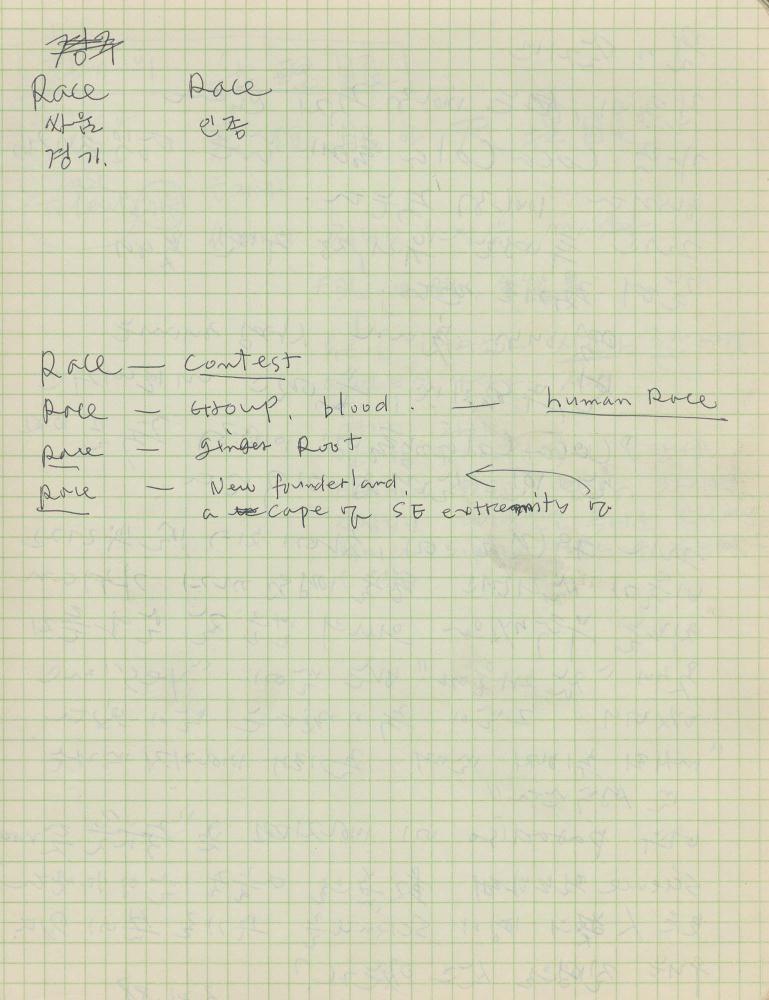 Race Race
싸움 인종
경기.
Race — Contest
Race — Group, blood. — human Race
Race — ginger Root
Race — New founderland.
a cape of SE extremity of